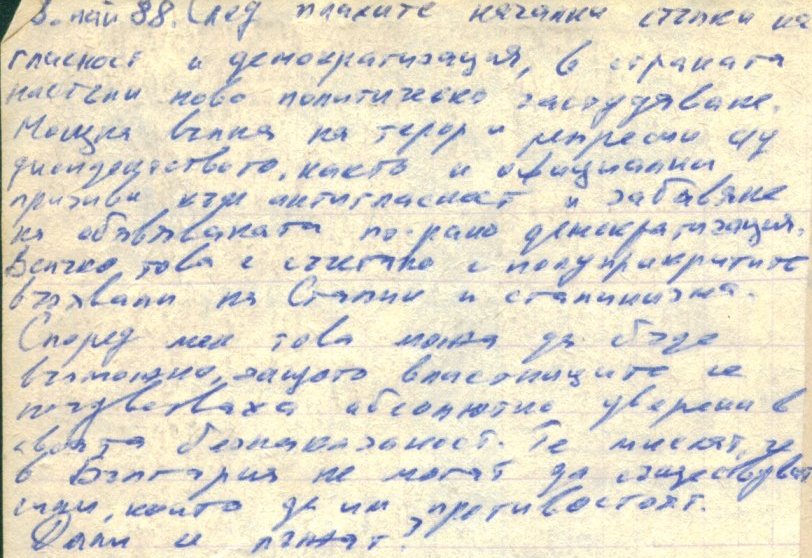 8. май 88. След плахите начални стъпки на
гласност и демократизация, в страната
настъпи ново политическо застудяване.
Мощна вълна на терор и репресии с/у
дисидентството, както и официални
призиви към антигласност и забавяне
на обявяваната по-рано демократизация.
Всичко това е съчетано с полуприкритите
възхвали на Сталин и сталинизма.
Според мен това можа да бъде
възможно, защото властниците се
почувстваха абсолютно уверени в
своята безнаказаност. Те мислят, че
в България не могат да съществуват
сили, които да им противостоят.
Дали се лъжат?